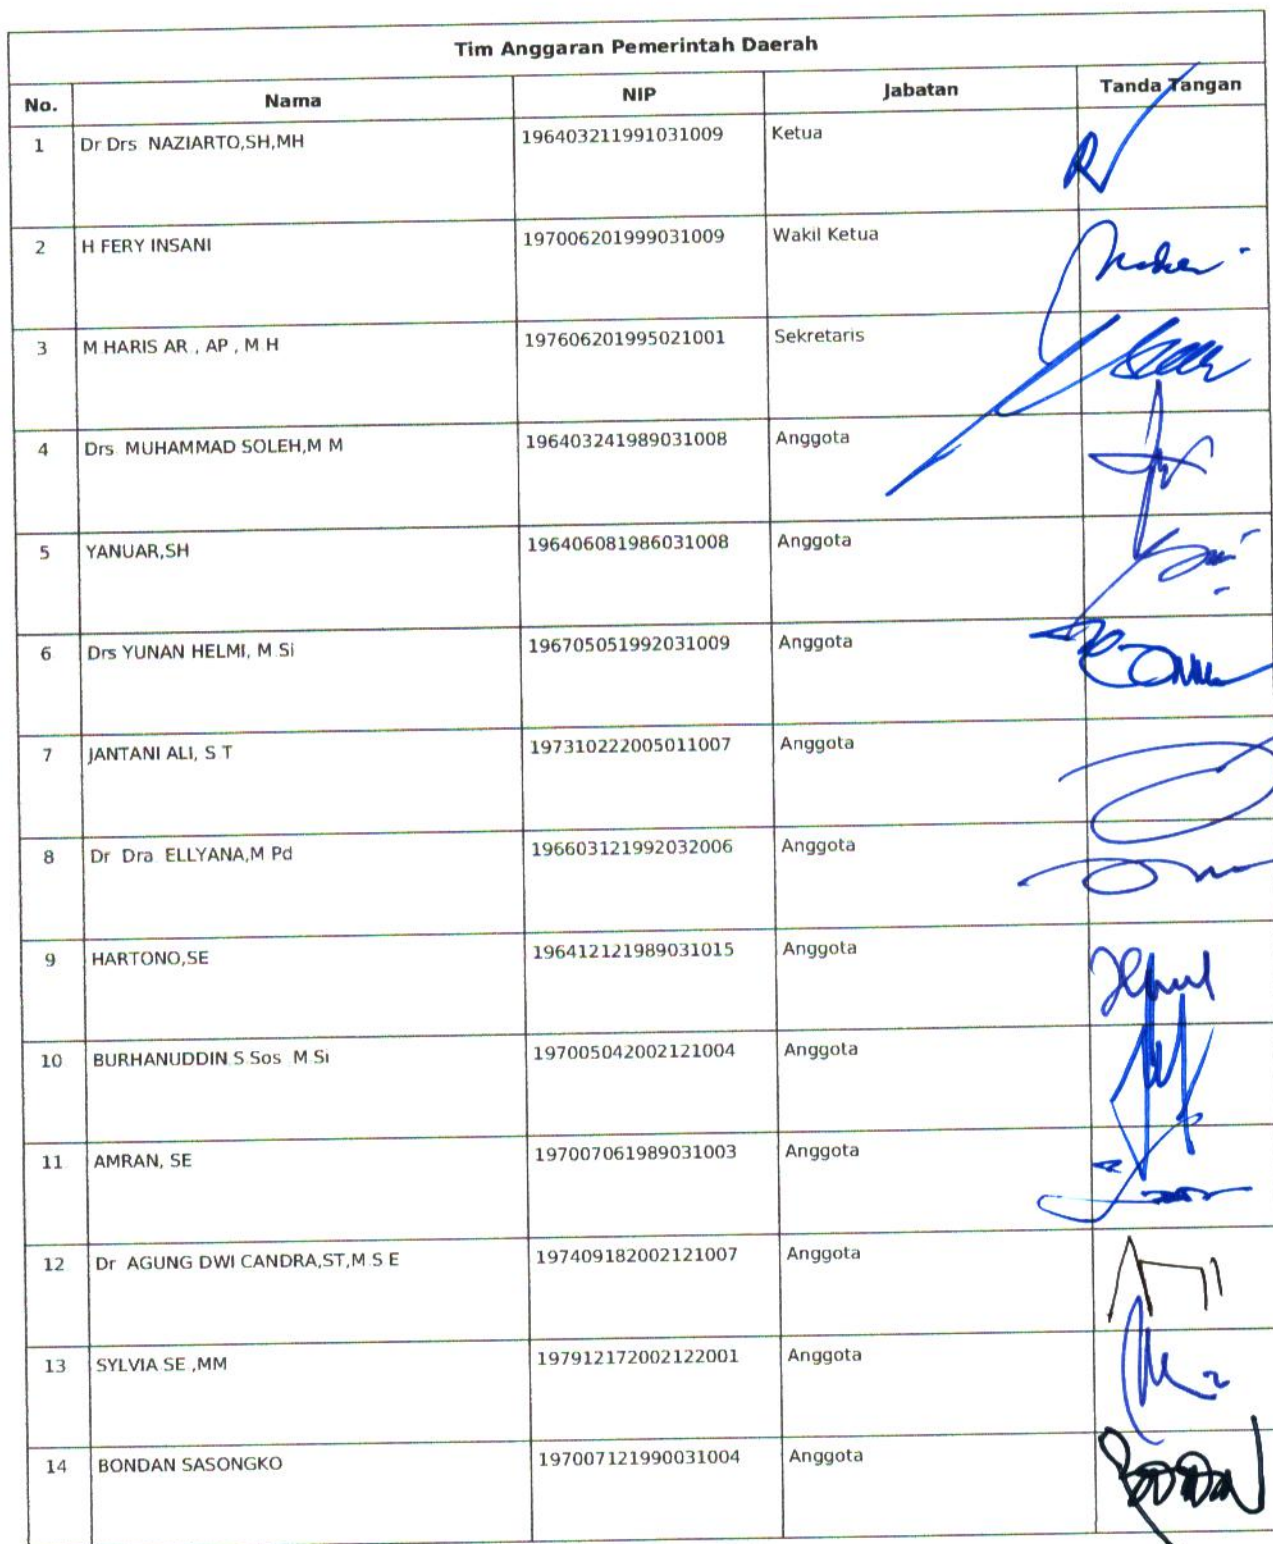 Tim Anggaran Pemerintah Daerah
No. Nama NIP Jabatan Tanda Tangan
1 Dr Drs NAZIARTO,SH,MH 196403211991031009 Ketua
2 H FERY INSANI 197006201999031009 Wakil Ketua
3 M HARIS AR , AP , M H 197606201995021001 Sekretaris
4 Drs MUHAMMAD SOLEH,M M 196403241989031008 Anggota
5 YANUAR,SH 196406081986031008 Anggota
6 Drs YUNAN HELMI, M Si 196705051992031009 Anggota
7 JANTANI ALI, S T 197310222005011007 Anggota
8 Dr Dra ELLYANA,M Pd 196603121992032006 Anggota
9 HARTONO,SE 196412121989031015 Anggota
10 BURHANUDDIN S Sos M Si 197005042002121004 Anggota
11 AMRAN, SE 197007061989031003 Anggota
12 Dr AGUNG DWI CANDRA,ST,M S E 197409182002121007 Anggota
13 SYLVIA SE ,MM 197912172002122001 Anggota
14 BONDAN SASONGKO 197007121990031004 Anggota